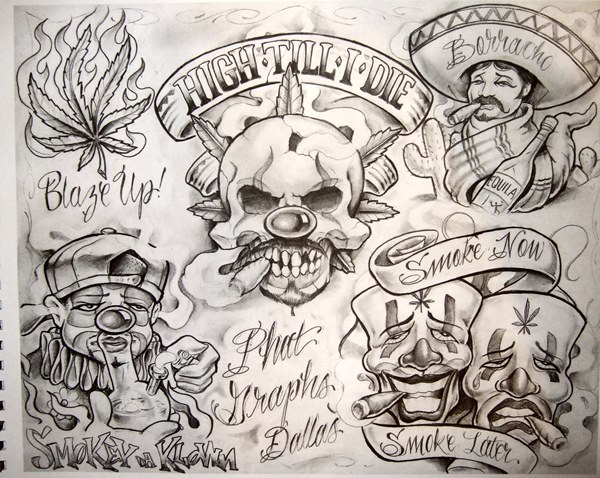 HIGH·TILL·I·DIE
Borracho
TEQUILA
Blaze Up!
Smoke Now
Phat
Graphs
Dallas
SMOKEY DA KLOWN
Smoke Later